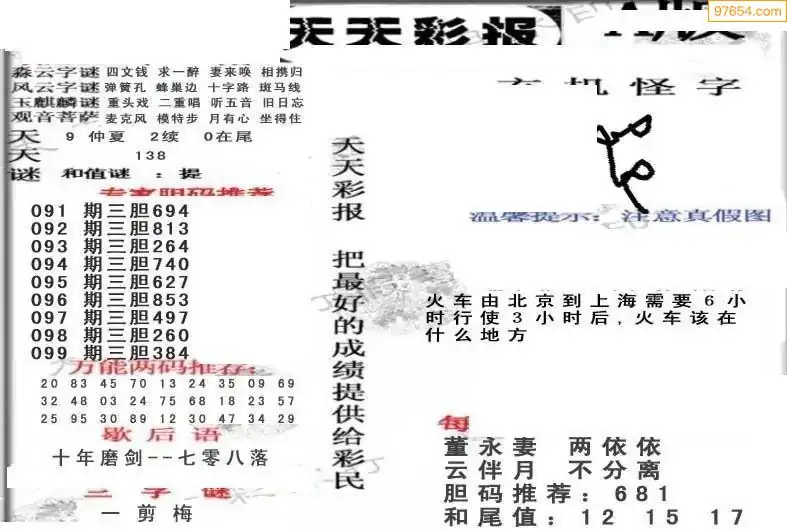 97654.com
天天彩报 A版
森云字谜 四文钱 求一醉 妻来唤 相携归
风云字谜 弹簧孔 蜂巢边 十字路 斑马线
玉麒麟谜 重头戏 二重唱 听五音 旧日忘
观音菩萨 麦克风 模特步 月有心 坐得住
天 9 仲夏 2续 0在尾
天 138
谜 和值谜 : 提
专家胆码推荐
091 期三胆694
092 期三胆813
093 期三胆264
094 期三胆740
095 期三胆627
096 期三胆853
097 期三胆497
098 期三胆260
099 期三胆384
万能两码推荐:
20 83 45 70 13 24 35 09 69
32 48 03 24 75 68 18 23 57
25 95 30 89 12 30 47 34 29
歇后语
十年磨剑--七零八落
三字谜
一剪梅
天天彩报 把最好的成绩提供给彩民
玄机怪字
温馨提示: 注意真假图
火车由北京到上海需要6小
时行使3小时后,火车该在
什么地方
每
董永妻 两依依
云伴月 不分离
胆码推荐: 681
和尾值: 12 15 17